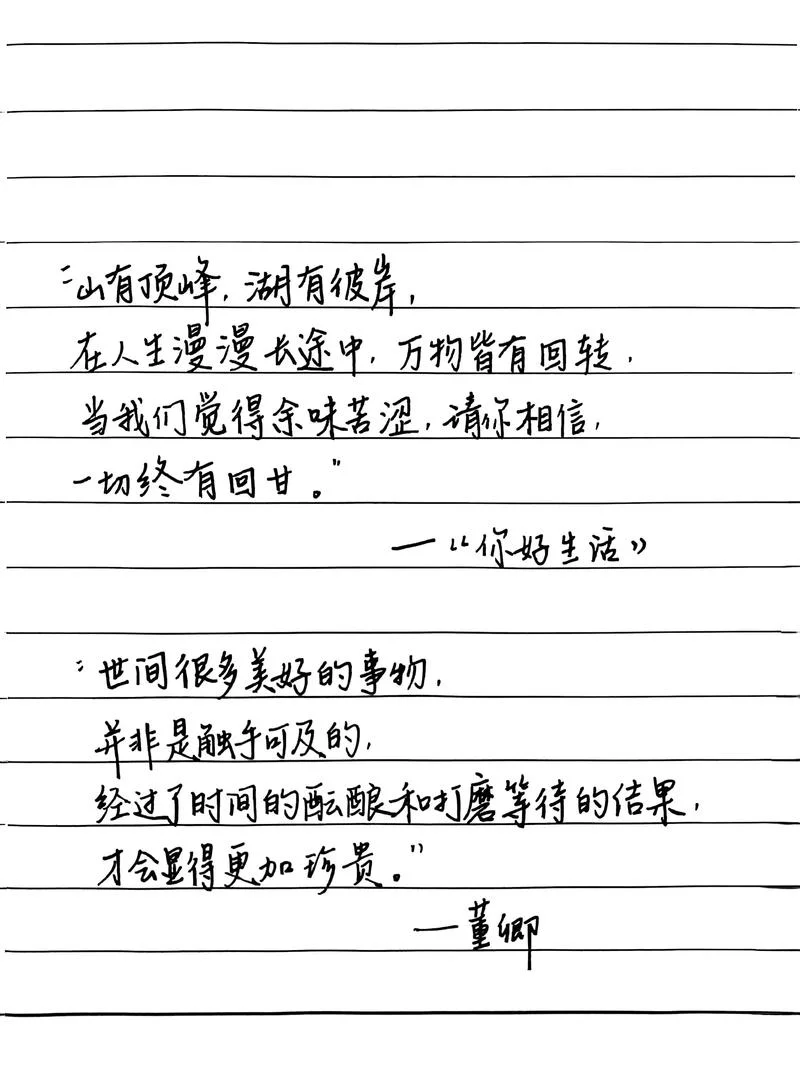 “山有顶峰，湖有彼岸，
在人生漫漫长途中，万物皆有回转，
当我们觉得余味苦涩，请你相信，
一切终有回甘。”
—《你好生活》
“世间很多美好的事物，
并非是触手可及的，
经过了时间的酝酿和打磨等待的结果，
才会显得更加珍贵。”
—董卿